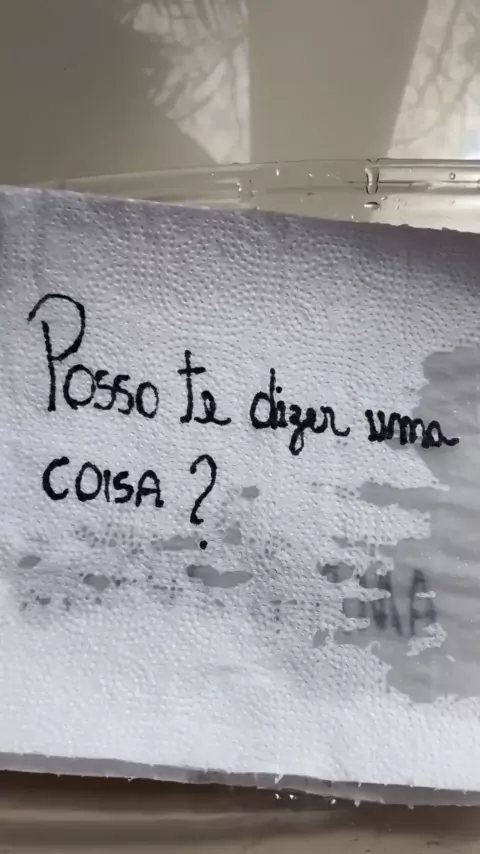 Posso te dizer uma
COISA?
MA